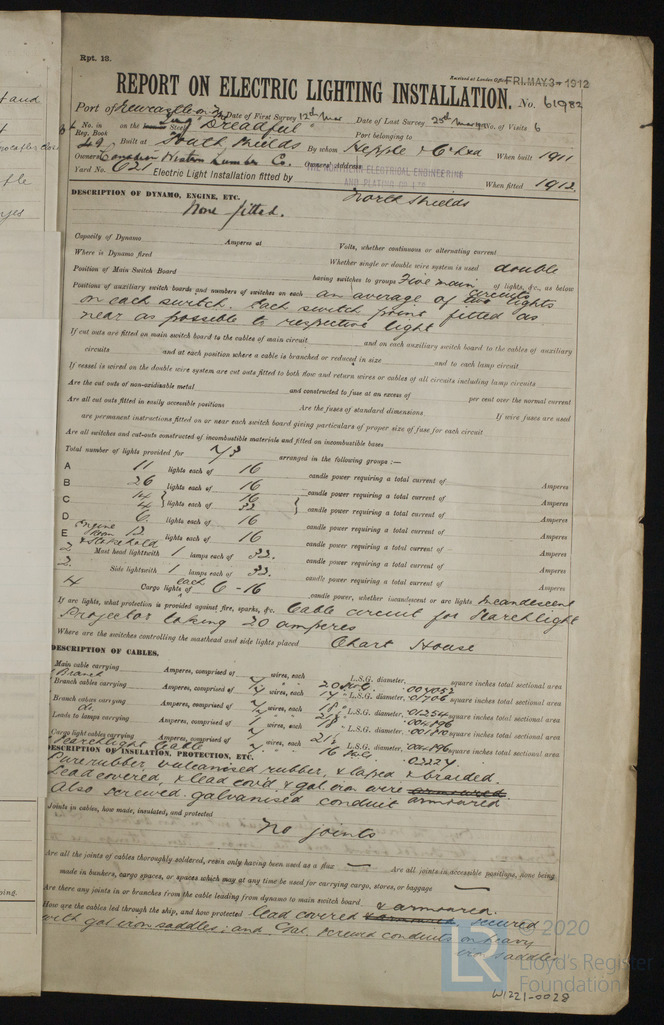 Rpt. 13.
Received at London Office FRI. MAY. 3 - 1912
REPORT ON ELECTRIC LIGHTING INSTALLATION. No. 61982
Port of Newcastle-on-Tyne Date of First Survey 12th Mar Date of Last Survey 25th No. of Visits 6
No. in Reg. Book on the Steel "Dreadful" Port belonging to
49 Built at South Shields By whom Hepple & Co Ltd When built 1911
Owners Canadian Western Lumber Co. Owners' Address
Yard No. 621 Electric Light Installation fitted by THE NORTHERN ELECTRICAL ENGINEERING AND PLATING CO LTD When fitted 1912
North Shields
DESCRIPTION OF DYNAMO, ENGINE, ETC.
None fitted.
Capacity of Dynamo Amperes at Volts, whether continuous or alternating current
Where is Dynamo fixed Whether single or double wire system is used double
Position of Main Switch Board having switches to groups Five main circuits of lights, &c., as below
Positions of auxiliary switch boards and numbers of switches on each an average of two lights
on each switch. Each switch fitted as
near as possible to respective light
If cut outs are fitted on main switch board to the cables of main circuit and on each auxiliary switch board to the cables of auxiliary
circuits and at each position where a cable is branched or reduced in size and to each lamp circuit
If vessel is wired on the double wire system are cut outs fitted to both flow and return wires or cables of all circuits including lamp circuits
Are the cut outs of non-oxidizable metal and constructed to fuse at an excess of per cent over the normal current
Are all cut outs fitted in easily accessible positions Are the fuses of standard dimensions If wire fuses are used
are permanent instructions fitted on or near each switch board giving particulars of proper size of fuse for each circuit
Are all switches and cut-outs constructed of incombustible materials and fitted on incombustible bases
Total number of lights provided for 73 arranged in the following groups :—
A 11 lights each of 16 candle power requiring a total current of Amperes
B 26 lights each of 16 candle power requiring a total current of Amperes
C 14 4 } lights each of 16 32 } candle power requiring a total current of Amperes
D 6 lights each of 16 candle power requiring a total current of Amperes
E Engine Room & Stokehold 12 lights each of 16 candle power requiring a total current of Amperes
2 Mast head light with 1 lamps each of 32. candle power requiring a total current of Amperes
2. Side light with 1 lamps each of 32. candle power requiring a total current of Amperes
4 Cargo lights each of 6 - 16 candle power, whether incandescent or arc lights Incandescent
If arc lights, what protection is provided against fire, sparks, &c. Cable circuit for Searchlight
Projector taking 20 amperes
Where are the switches controlling the masthead and side lights placed Chart House
DESCRIPTION OF CABLES.
Main cable carrying Amperes, comprised of 7 wires, each 20 L.S.G. diameter, square inches total sectional area
Branch cables carrying Amperes, comprised of wires, each L.S.G. diameter, .01706 square inches total sectional area
Branch cables carrying Amperes, comprised of 7 wires, each 18 L.S.G. diameter, .01254 square inches total sectional area
Leads to lamps carrying Amperes, comprised of 1 wires, each 18 L.S.G. diameter, square inches total sectional area
Cargo light cables carrying Amperes, comprised of wires, each L.S.G. diameter, square inches total sectional area
Searchlight Cable 7 16 .02227
DESCRIPTION OF INSULATION, PROTECTION, ETC.
Pure rubber, vulcanised rubber, & taped & braided.
Lead covered, & lead cov'd & gal iron wire armoured
Also screwed galvanised conduit
Joints in cables, how made, insulated, and protected
No joints
Are all the joints of cables thoroughly soldered, resin only having been used as a flux — Are all joints in accessible positions, none being
made in bunkers, cargo spaces, or spaces which may at any time be used for carrying cargo, stores, or baggage —
Are there any joints in or branches from the cable leading from dynamo to main switch board
How are the cables led through the ship, and how protected lead covered & armoured. secured
with gal iron saddles; and Gal. screwed conduits on heavy
iron saddles
© 2020
Lloyd's Register
Foundation
W1221-0028